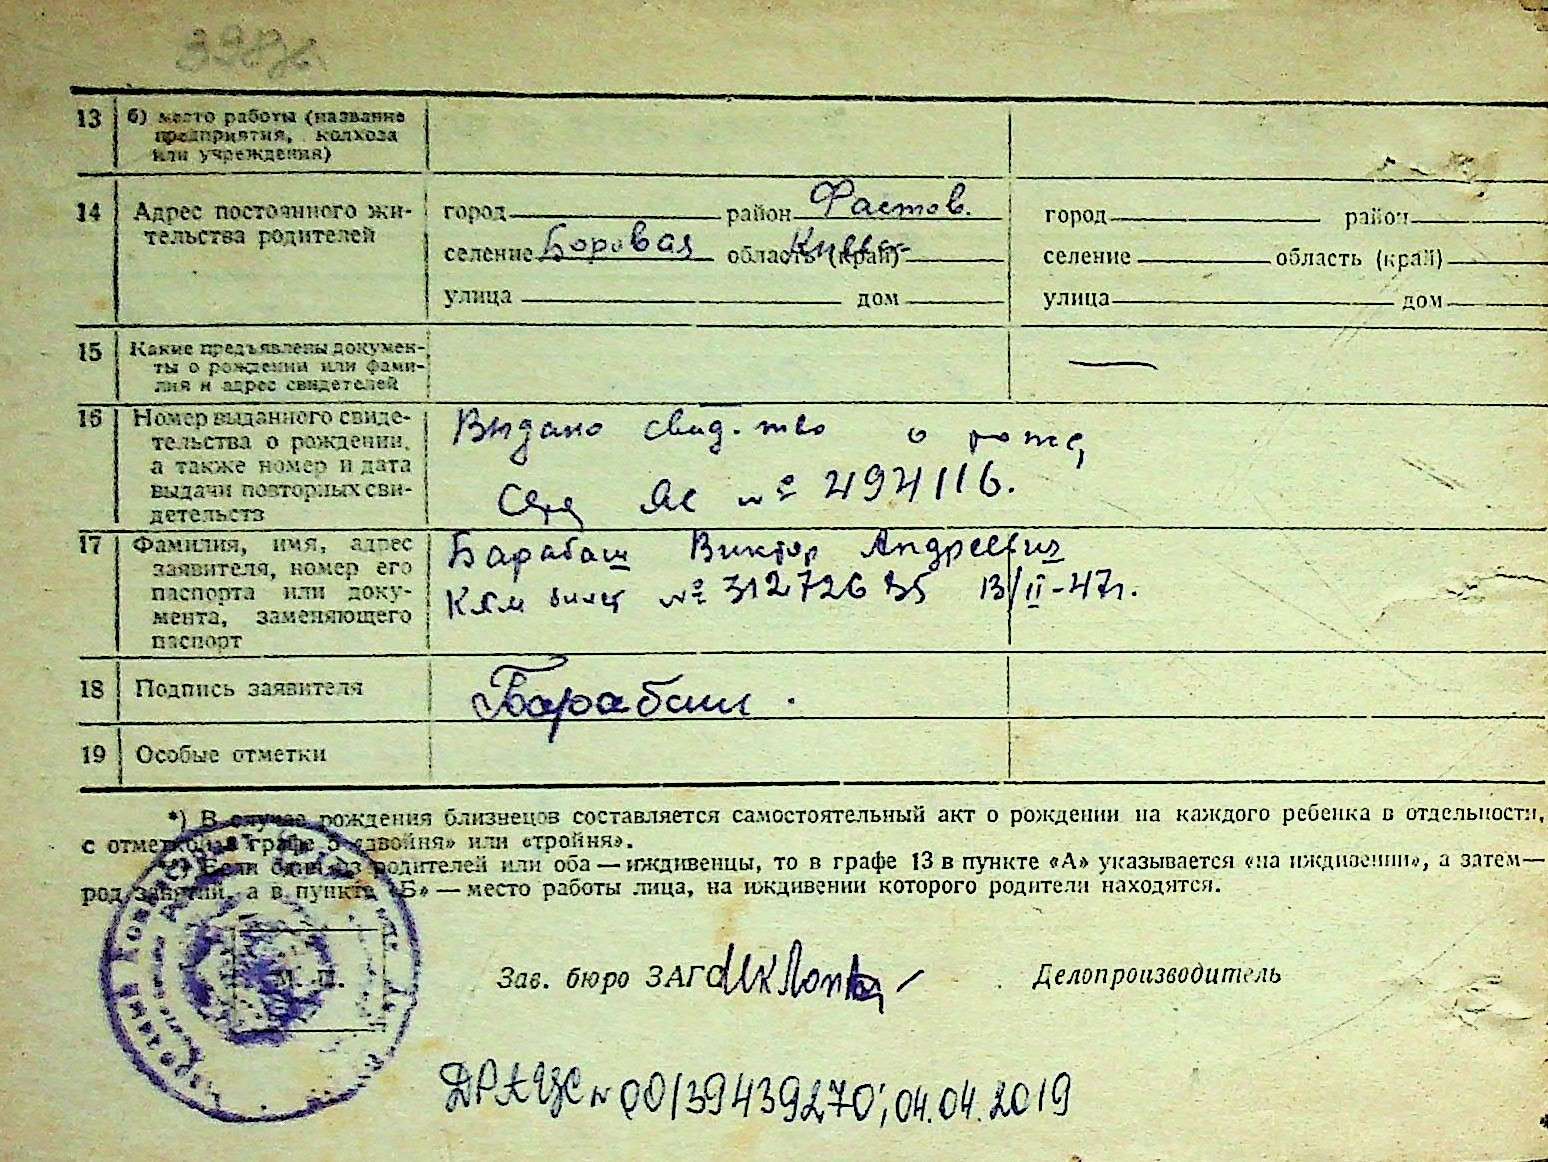 398
13 б) место работы (название предприятия, колхоза или учреждения)
14 Адрес постоянного жи-
тельства родителей
город район Фастов. город район
селение Боровая область (край) Киевс- селение область (край)
улица дом улица дом
15 Какие предъявлены докумен-
ты о рождении или фами-
лия и адрес свидетелей
16 Номер выданного свиде-
тельства о рождении,
а также номер и дата
выдачи повторных сви-
детельств
Выдано свид-тво о рожд
№ 494116.
17 Фамилия, имя, адрес
заявителя, номер его
паспорта или доку-
мента, заменяющего
паспорт
Барабаш Виктор Андреевич
билет № 31272635 13/II-47г.
18 Подпись заявителя
Барабаш.
19 Особые отметки
*) В случае рождения близнецов составляется самостоятельный акт о рождении на каждого ребенка в отдельности,
с отметкой в графе 5 «двойня» или «тройня».
Если один из родителей или оба — иждивенцы, то в графе 13 в пункте «А» указывается «на иждивении», а затем—
род занятий, а в пункте «Б» — место работы лица, на иждивении которого родители находятся.
М. П.
Зав. бюро ЗАГС Делопроизводитель
ДРАЦС № 00139439270; 04.04.2019